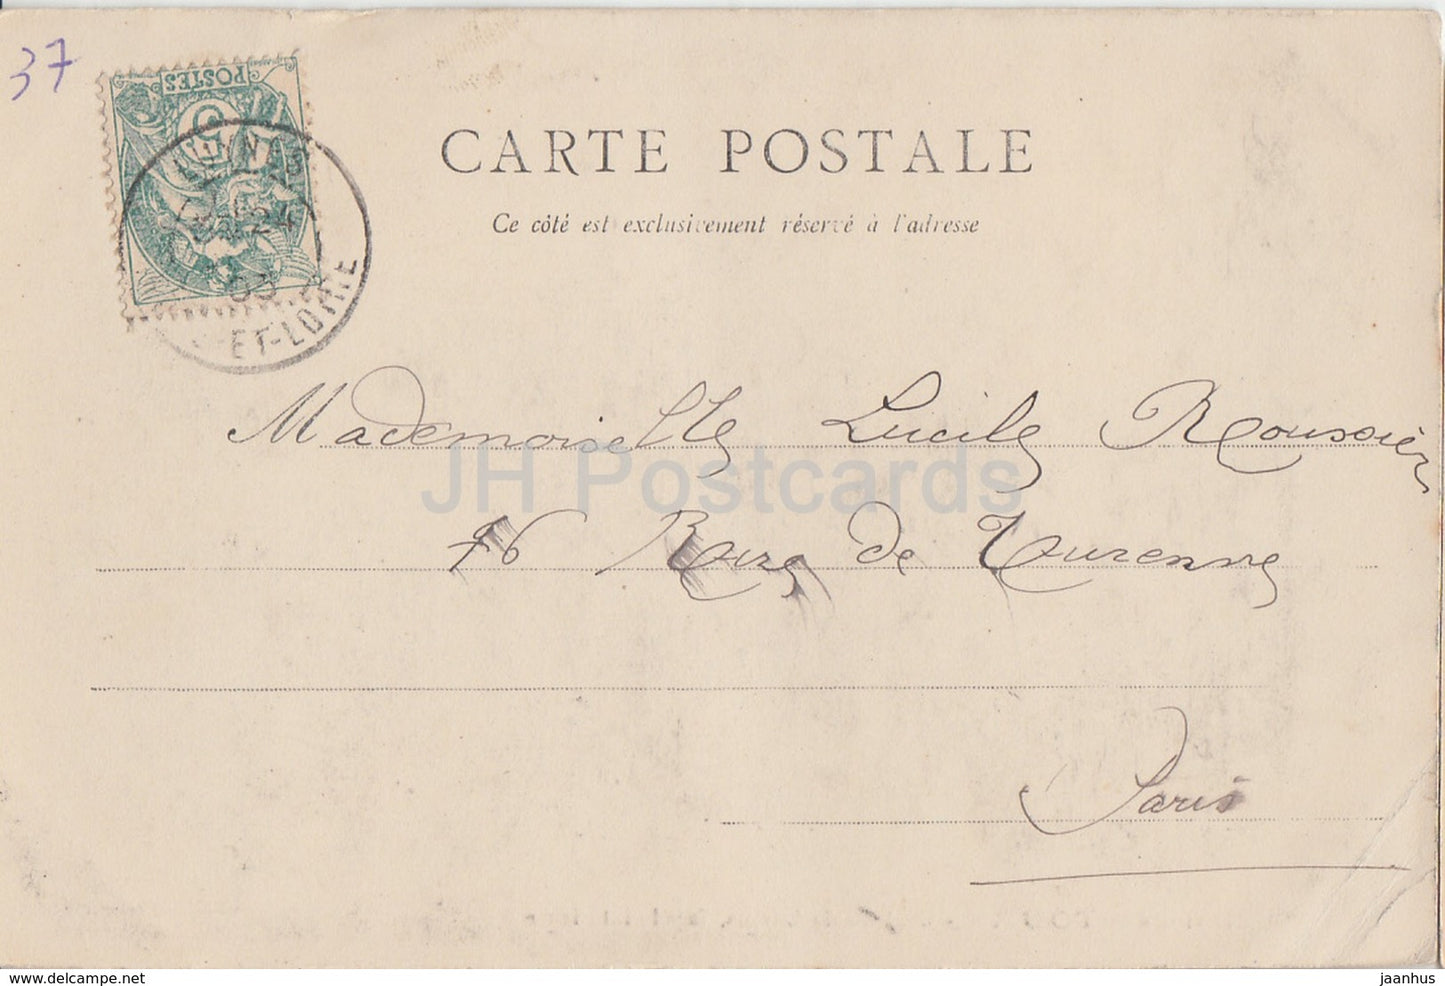 37
POSTES
5
24
03
ET-LOIRE
CARTE POSTALE
Ce côté est exclusivement réservé à l'adresse
Mademoiselle Lucile Roussier
76 Rue de Turenne
Paris
JH Postcards
www.delcampe.net
jaanhus